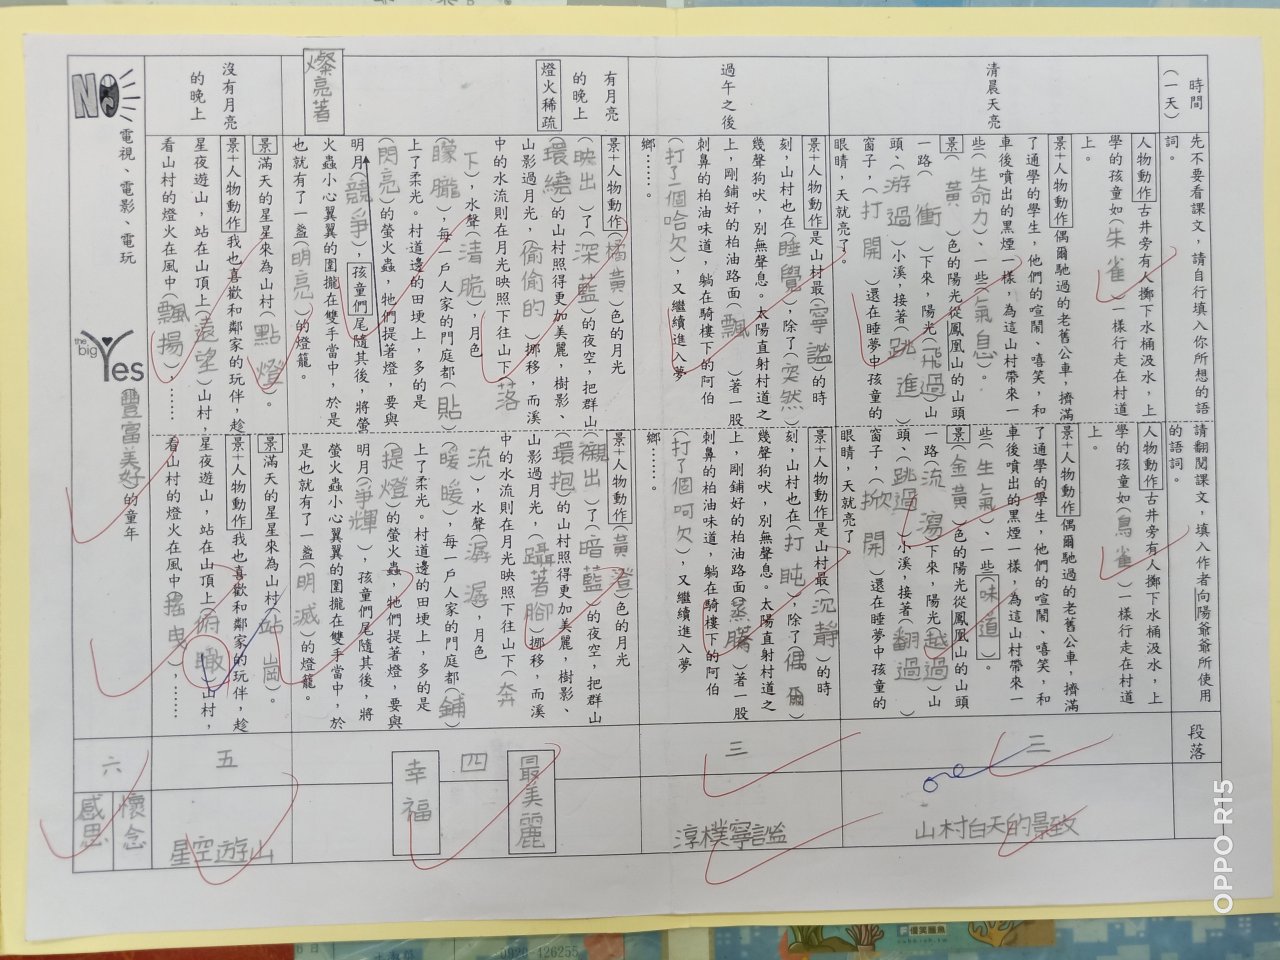 時間
(一天)
先不要看課文,請自行填入你所想的語
詞。
請翻閱課文,填入作者向陽爺爺所使用
的語詞。
段落
清晨天亮
人物動作 古井旁有人擲下水桶汲水,上
學的孩童如(朱雀)一樣行走在村道
上。
景+人物動作 偶爾馳過的老舊公車,擠滿
了通學的學生,他們的喧鬧、嘻笑,和
車後噴出的黑煙一樣,為這山村帶來一
些(生命力)、一些(氣息)。
景(黃)色的陽光從鳳凰山的山頭
一路(衝)下來,陽光(飛過)山
頭、(游過)小溪,接著(跳進)
窗子,(打開)還在睡夢中孩童的
眼睛,天就亮了。
人物動作 古井旁有人擲下水桶汲水,上
學的孩童如(鳥雀)一樣行走在村道
上。
景+人物動作 偶爾馳過的老舊公車,擠滿
了通學的學生,他們的喧鬧、嘻笑,和
車後噴出的黑煙一樣,為這山村帶來一
些(生氣)、一些(味道)。
景(金黃)色的陽光從鳳凰山的山頭
一路(流瀉)下來,陽光(越過)山
頭、(跳過)小溪,接著(翻過)
窗子(掀開)還在睡夢中孩童的
眼睛,天就亮了。
三
山村白天的景致
過午之後
景+人物動作 是山村最(寧謐)的時
刻,山村也在(睡覺),除了(突然)
幾聲狗吠,別無聲息。太陽直射村道之
上,剛鋪好的柏油路面(飄)著一股
刺鼻的柏油味道,躺在騎樓下的阿伯
(打了個哈欠),又繼續進入夢
鄉……。
景+人物動作 是山村最(沉靜)的時
刻,山村也在(打盹),除了(偶爾)
幾聲狗吠,別無聲息。太陽直射村道之
上,剛鋪好的柏油路面(蒸騰)著一股
刺鼻的柏油味道,躺在騎樓下的阿伯
(打了個呵欠),又繼續進入夢
鄉……。
三
淳樸寧謐
有月亮
的晚上
燈火稀疏
燦亮著
景+人物動作(橘黃)色的月光
(映出)了(深藍)的夜空,把群山
(環繞)的山村照得更加美麗,樹影、
山影過月光,(偷偷的)挪移,而溪
中的水流則在月光映照下往山下(落
下),水聲(清脆),月色
(朦朧),每一戶人家的門庭都(貼)
上了柔光。村道邊的田埂上,多的是
(閃亮)的螢火蟲,牠們提著燈,要與
明月(競爭),孩童們尾隨其後,將螢
火蟲小心翼翼的圍攏在雙手當中,於是
也就有了一盞(明亮)的燈籠。
景+人物動作(黃澄)色的月光
(襯出)了(暗藍)的夜空,把群山
(環抱)的山村照得更加美麗,樹影、
山影過月光,(躡著腳)挪移,而溪
中的水流則在月光映照下往山下(奔
流),水聲(潺潺),月色
(暖暖),每一戶人家的門庭都(鋪)
上了柔光。村道邊的田埂上,多的是
(提燈)的螢火蟲,牠們提著燈,要與
明月(爭輝),孩童們尾隨其後,將
螢火蟲小心翼翼的圍攏在雙手當中,於
是也就有了一盞(明滅)的燈籠。
四
最美麗
幸福
沒有月亮
的晚上
景 滿天的星星來為山村(點燈)。
景+人物動作 我也喜歡和鄰家的玩伴,趁
星夜遊山,站在山頂上(遠望)山村,
看山村的燈火在風中(飄揚),……
景 滿天的星星來為山村(站崗)。
景+人物動作 我也喜歡和鄰家的玩伴,趁
星夜遊山,站在山頂上(俯瞰)山村,
看山村的燈火在風中(搖曳),……
五
星空遊山
NO
電視、電影、電玩
the big Yes
豐富美好的童年
六
懷念
感恩
OPPO R15
優笑鱷魚
0920-126255